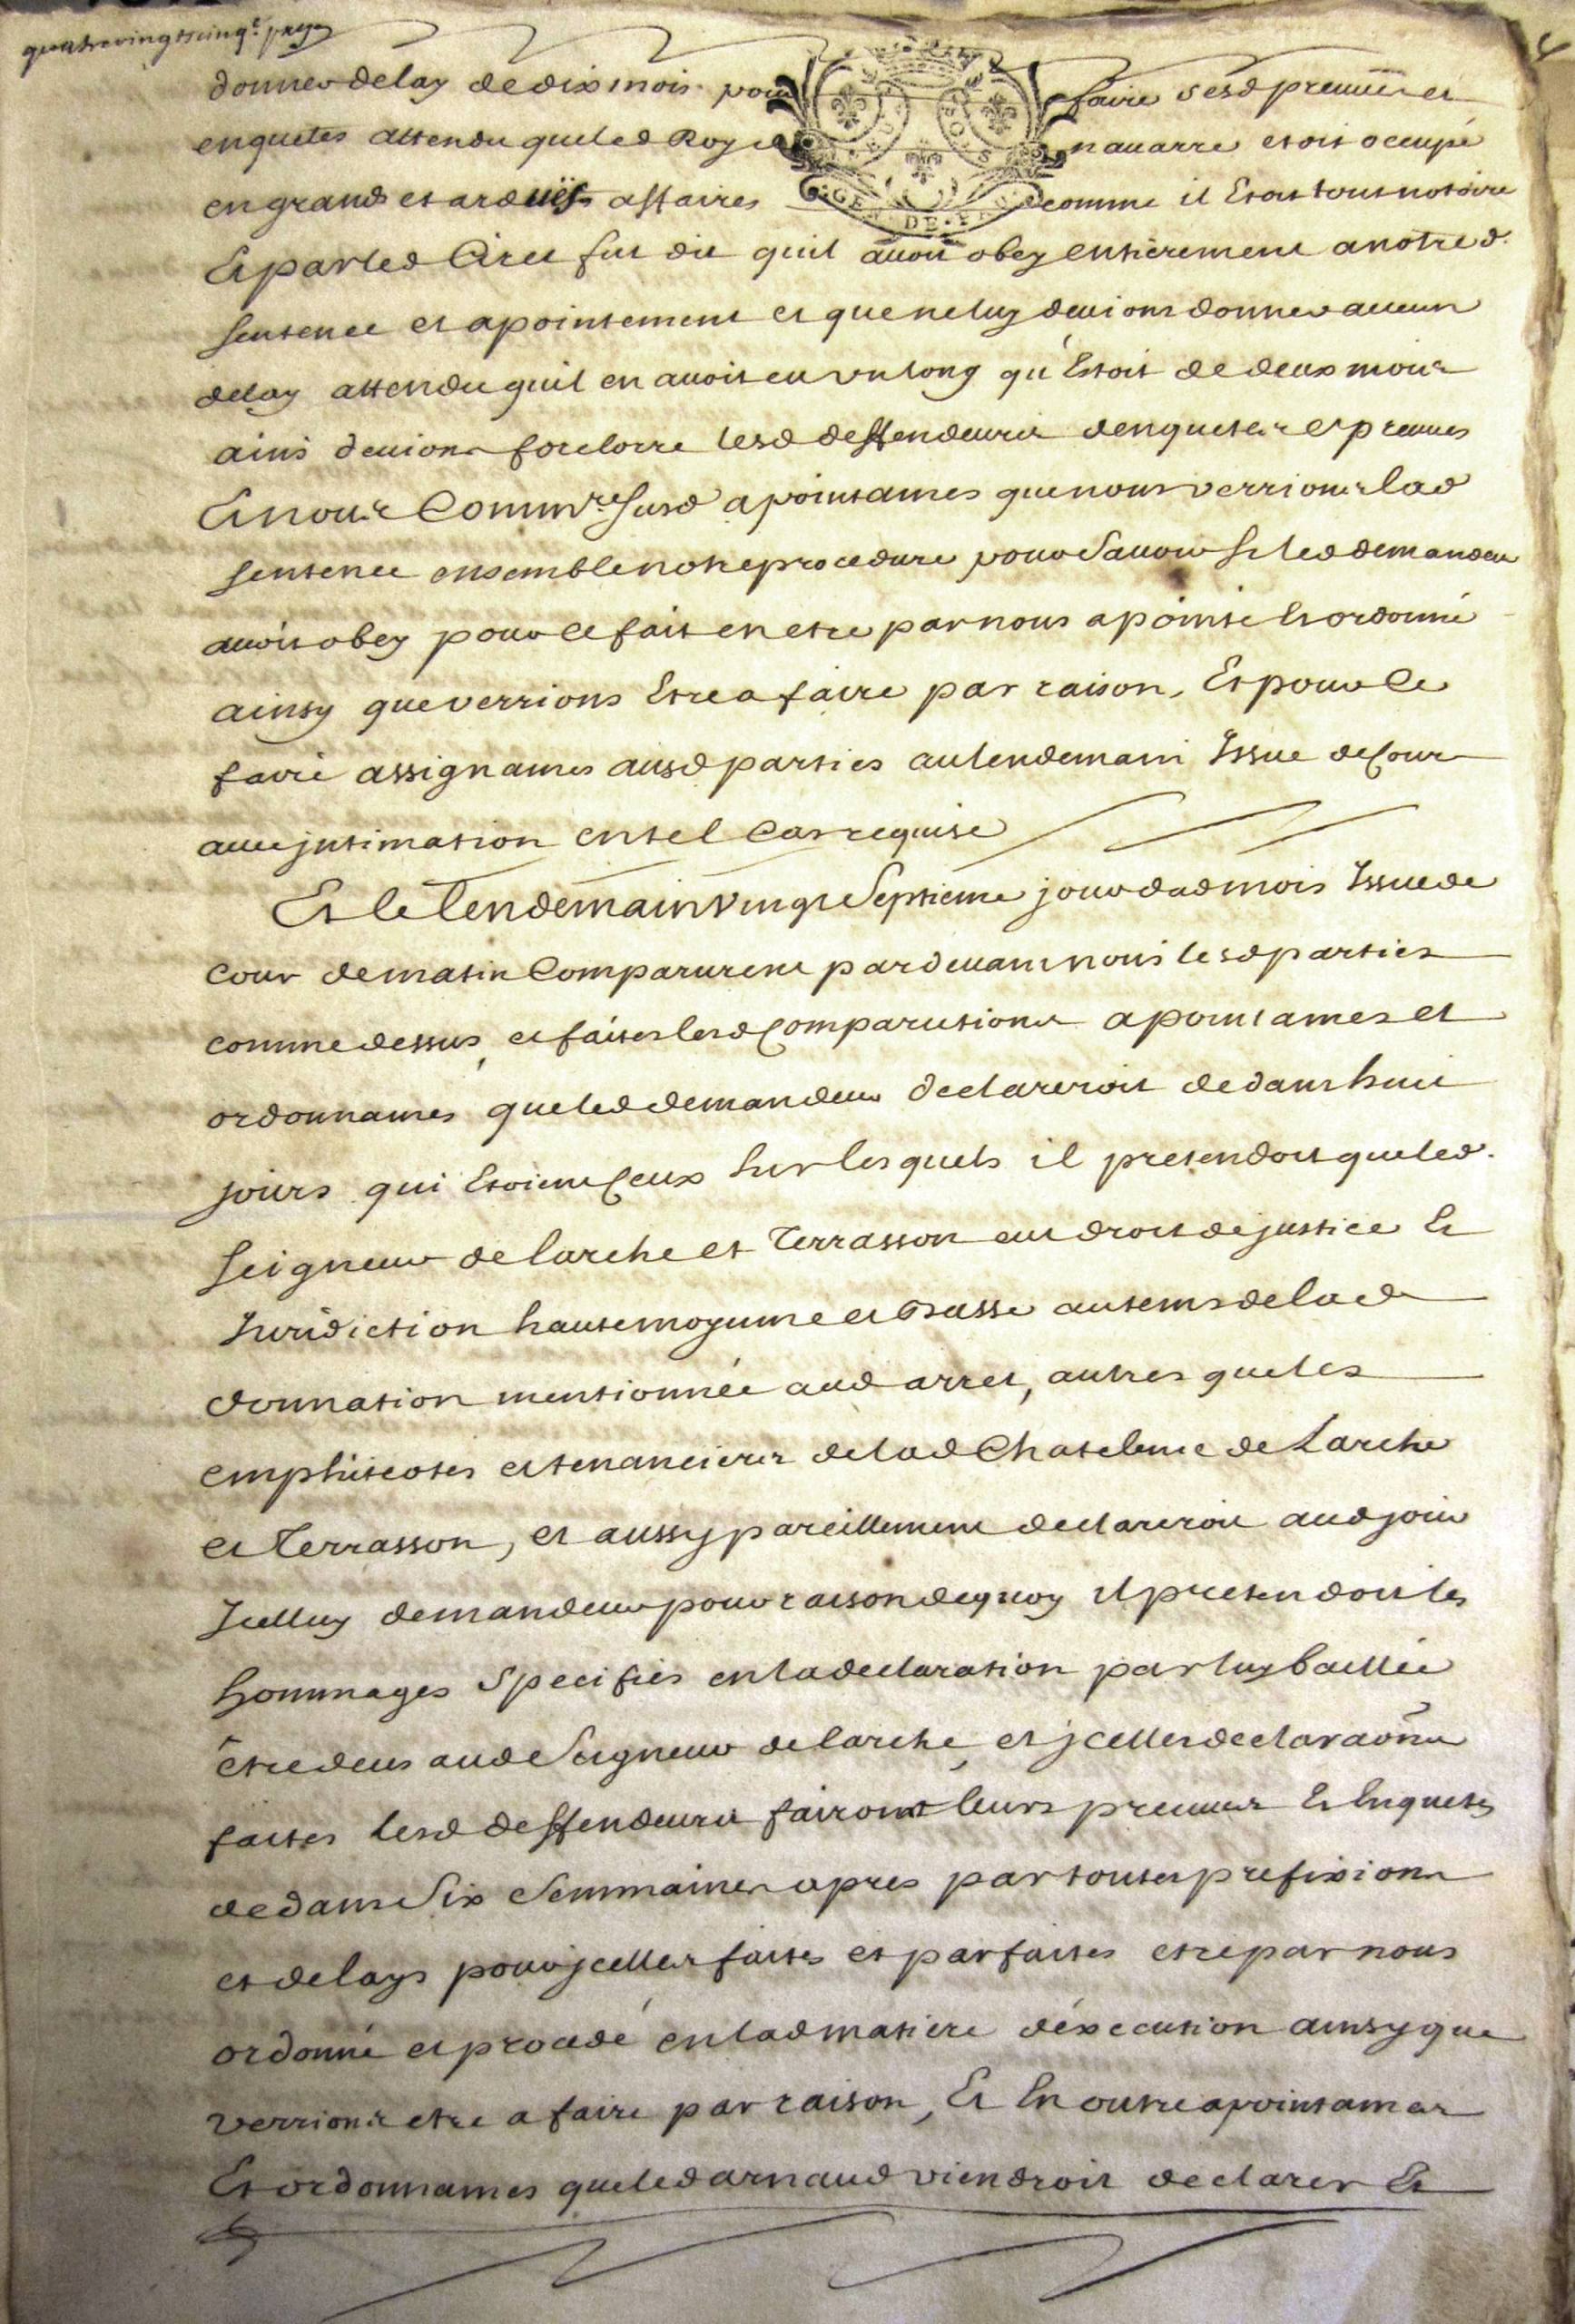 quatrevingtscinq.e page
donner delay de dix mois pour faire sesd preuves et
enquetes attendu que led Roy de navarre etoit occupé
en grands et arduës affaires comme il Etoit tout notoire
Et par led Cireu fut dit quil avoit obey entierement a notred.
Sentence et apointement et que ne luy devions donner aucun
delay attendu quil en avoit eu un long qu'Estoit de deux mois
ains devions forclorre lesd deffendeurs denquetes et preuves
Et nous Comm.re Susd apointames que nous verrions lad
Sentence ensemble notre procedure pour Savoir Si led demandeur
avoit obey pour ce fait en etre par nous apointé Et ordonné
ainsy que verrions Estre a faire par raison, Et pour ce
faire assignames ausd parties au lendemain Issue de Cour
avec jntimation en tel Cas requise
Et le lendemain vingt Septieme jour dud mois Issue de
Cour de matin Comparurent pardevant nous lesd parties
comme dessus, et faites lesd Comparutions apointames et
ordonnames que led demandeur declareroit dedans huit
jours qui Etoient Ceux Sur lesquels il pretendoit que led.
Seigneur de larche et Terrasson eut droit de justice Et
Juridiction haute moyenne et Basse au tems de lad
donnation mentionnée aud arret, autres que les
emphiteotes et tenanciers de lad Chatelenie de Larche
et Terrasson, et aussy pareillement declareroit aud jour
Jcelluy demandeur pour raison de quoy il pretendoit les
hommages Specifiés en la declaration par luy baillée
être deus aud Seigneur de larche, et jcelles declara͠ons
faites lesd deffendeurs fairont leurs preuves Et Enquetes
dedans Six Semmaines apres par toutes prefixions
et delays pour jcelles faites et parfaites etre par nous
ordonné et procedé en lad matiere d'éxecution ainsy que
verrions etre a faire par raison, Et En outre apointames
Et ordonnames que led arnaud viendroit declarer Et